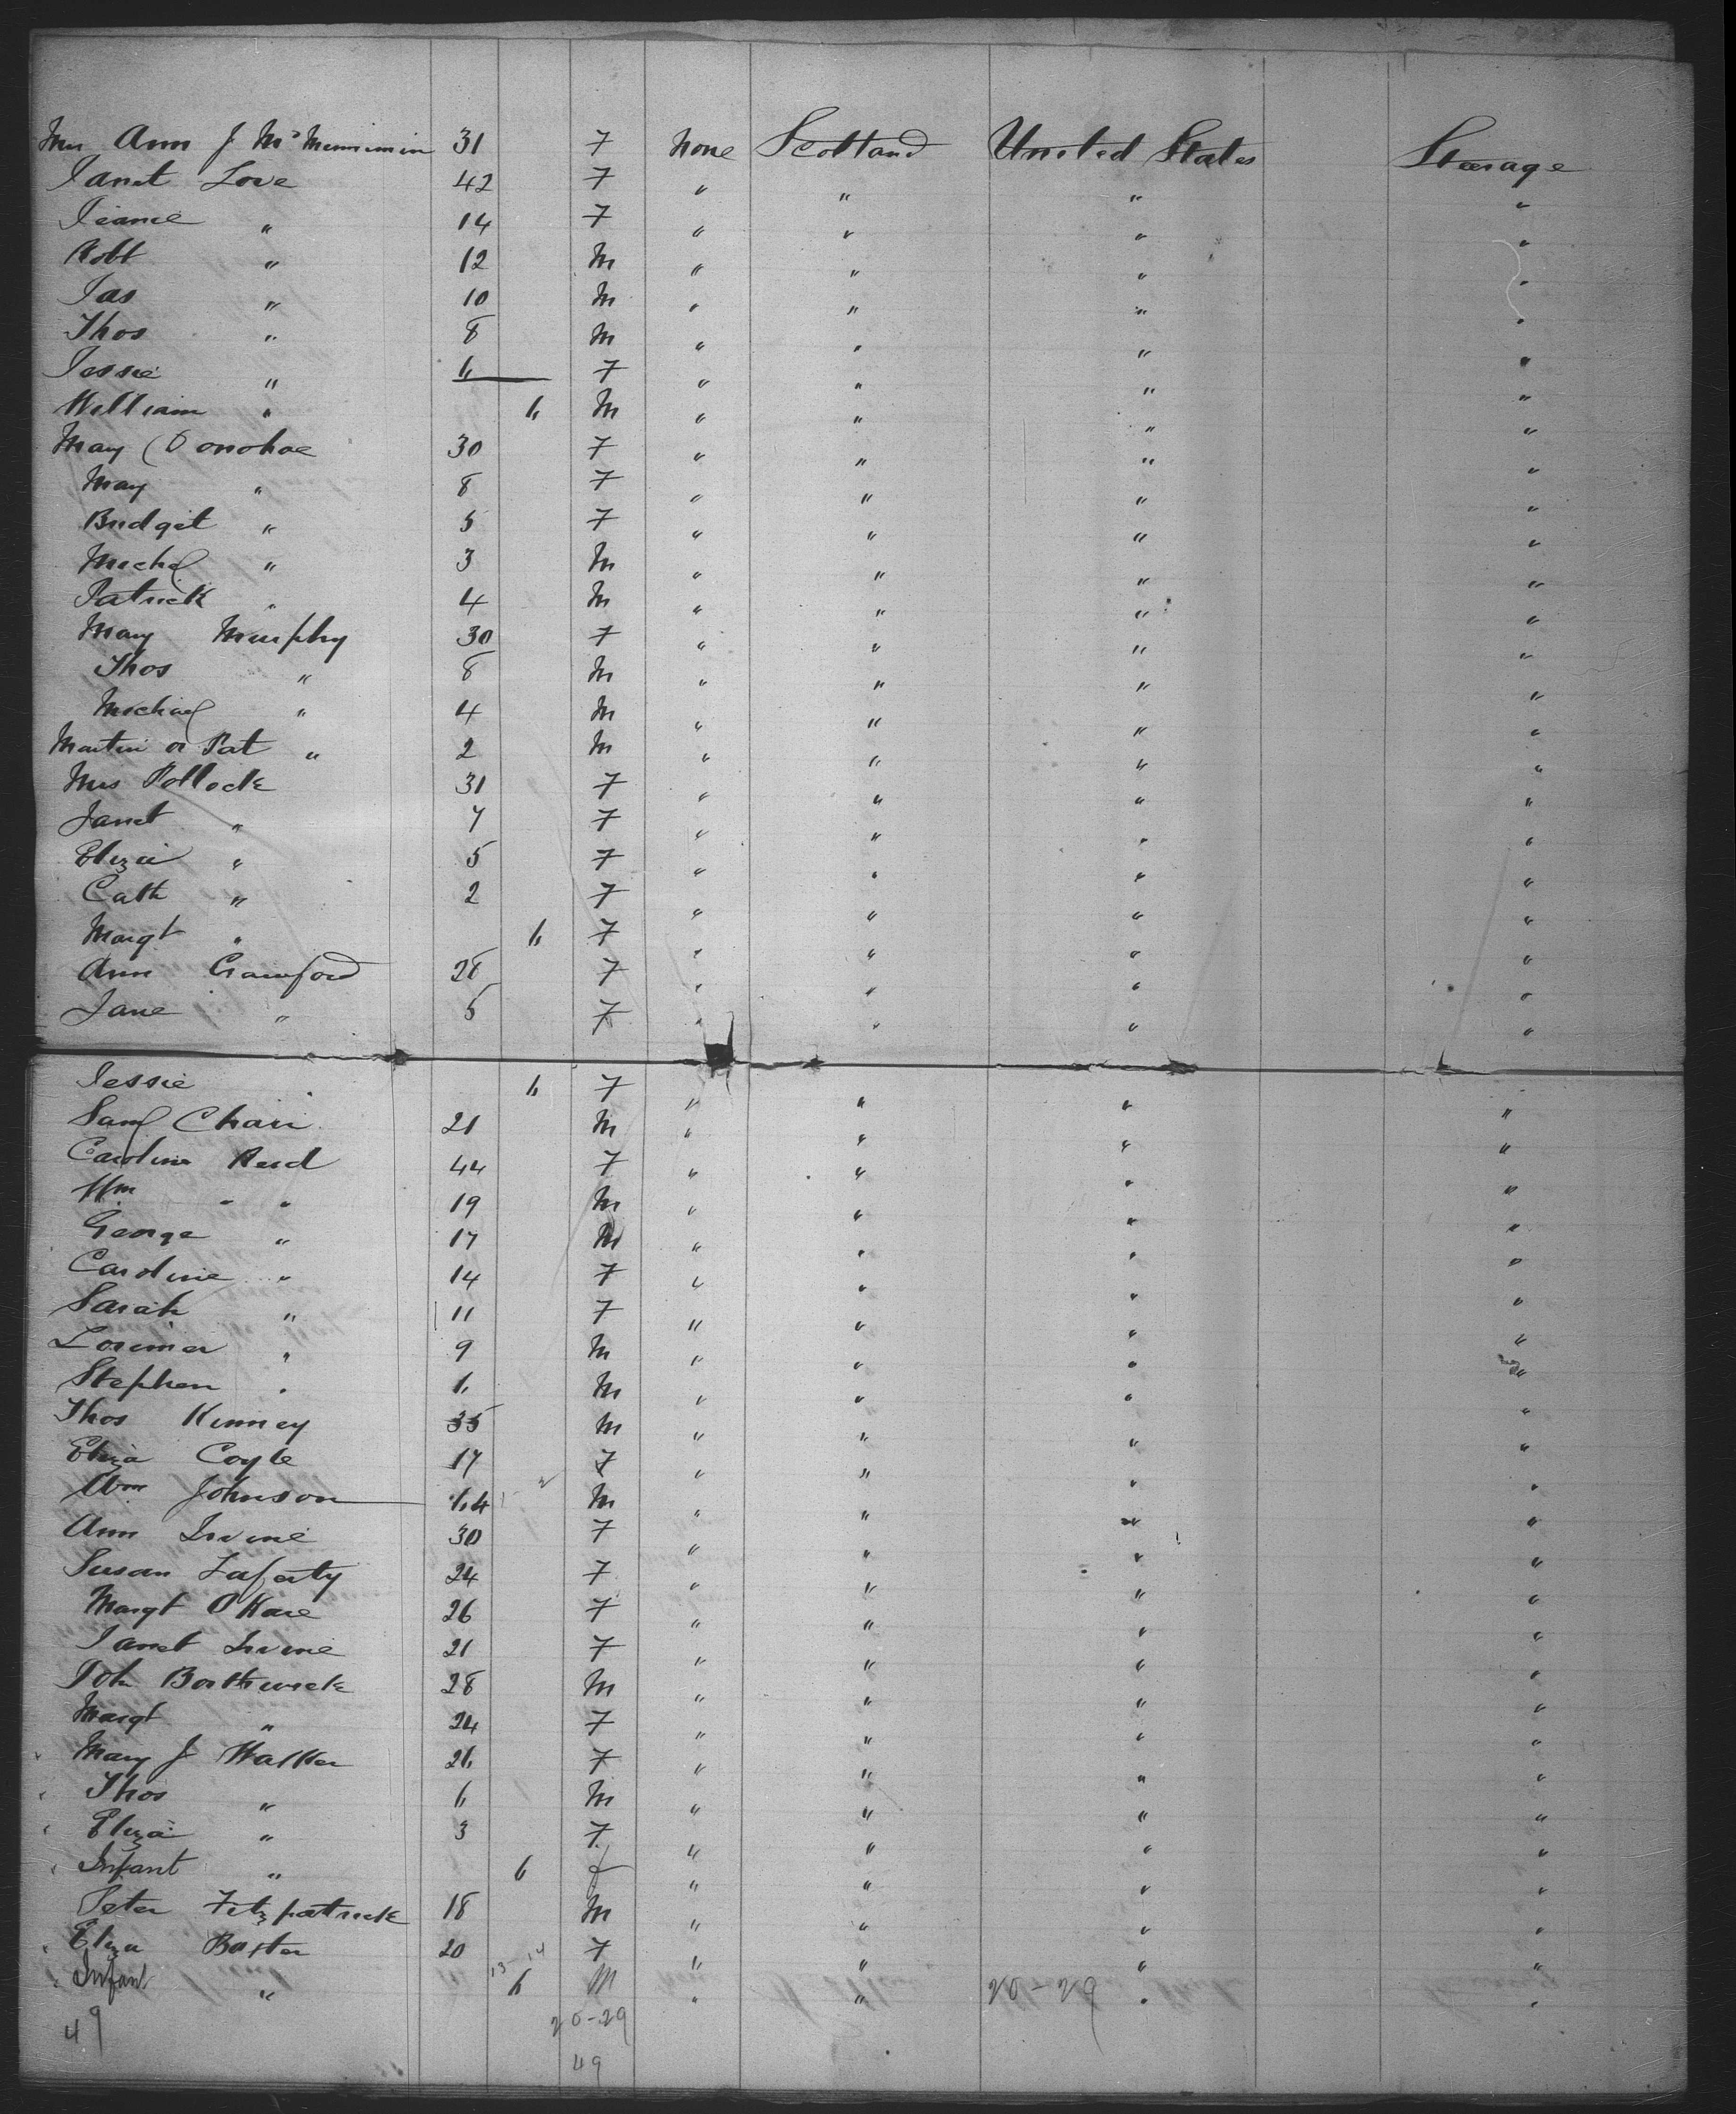 Mrs Ann J McMenimin 31 F None Scotland United States Steerage
Janet Love 42 F " " " "
Jeanie " 14 F " " " "
Robt " 12 M " " " "
Jas " 10 M " " " "
Thos " 8 M " " " "
Jessie " 6 F " " " "
William " 6 M " " " "
Mary O'Donohoe 30 F " " " "
Mary " 8 F " " " "
Bridget " 5 F " " " "
Michl " 3 M " " " "
Patrick " 4 M " " " "
Mary Murphy 30 F " " " "
Thos " 8 M " " " "
Michael " 4 M " " " "
Martin or Pat " 2 M " " " "
Mrs Pollock 31 F " " " "
Janet " 7 F " " " "
Eliza " 5 F " " " "
Cath " 2 F " " " "
Margt " 6 F " " " "
Ann Crawford 28 F " " " "
Jane " 5 F " " " "
Jessie 6 F " " " "
Saml 21 M " " " "
Caroline Reid 44 F " " " "
Wm " " 19 M " " " "
George " 17 M " " " "
Caroline " 14 F " " " "
Sarah " 11 F " " " "
Lorimer " 9 M " " " "
Stephen " 6 M " " " "
Thos Kinney 35 M " " " "
Eliza Coyle 17 F " " " "
Wm Johnson 64 M " " " "
Ann Irvine 30 F " " " "
Susan Laferty 24 F " " " "
Margt O'Kane 26 F " " " "
Janet Irvine 21 F " " " "
Joh Borthwick 28 M " " " "
Margt " 24 F " " " "
Mary J Walker 26 F " " " "
Thos " 6 M " " " "
Eliza " 3 F " " " "
Infant " 6 f " " " "
Peter Fitzpatrick 18 M " " " "
Eliza Baxter 20 F " " " "
Infant " 13-14 6 M " " " "
49 20-29
49